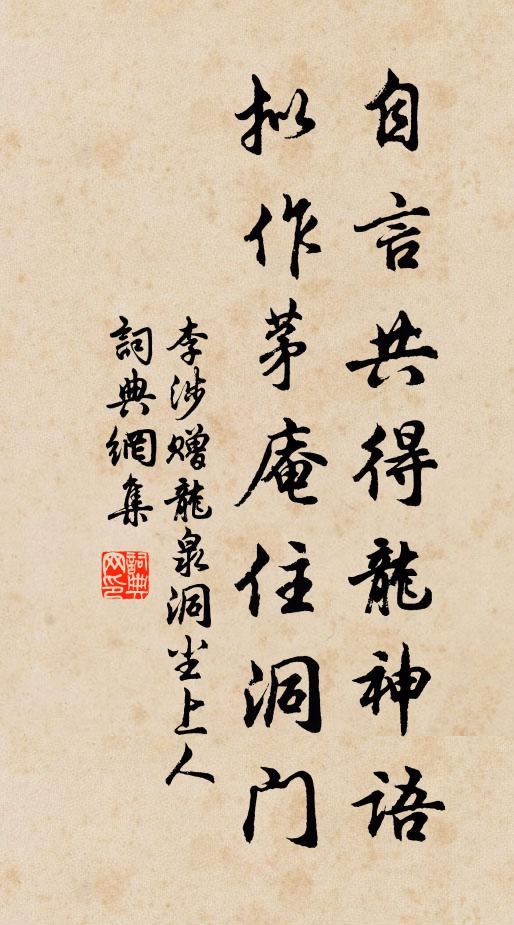 自言共得龍神語
拟作茅庵住洞门
李涉赠龍泉洞尘上人
詞典網集
詞典网印